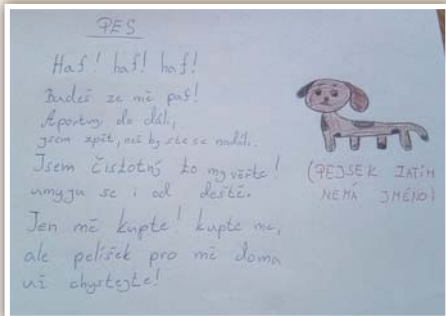 PES
Haf! haf! haf!
Budeš ze mě paf!
Aportuj do dáli,
jsem zpět, než by ste se nadáli.
Jsem čistotný to my věřte!
umyju se i od deště.
Jen mě kupte! kupte me,
ale pelíšek pro mě doma
už chystejte!
(PEJSEK ZATÍM
NEMÁ JMÉNO)